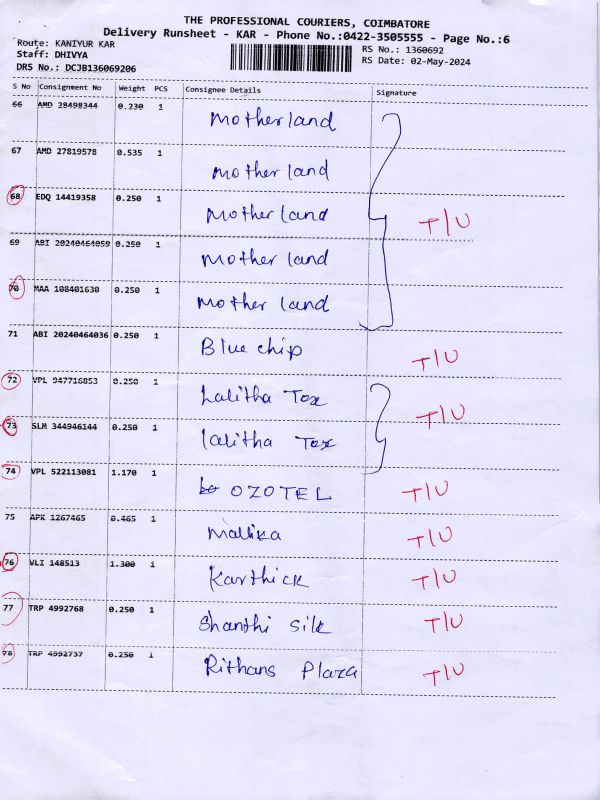 THE PROFESSIONAL COURIERS, COIMBATORE
Delivery Runsheet - KAR - Phone No.:0422-3505555 - Page No.:6
Route: KANIYUR KAR
RS No.: 1360692
Staff: DHIVYA
RS Date: 02-May-2024
DRS No.: DCJB136069206
S No Consignment No Weight PCS Consignee Details Signature
66 AMD 28498344 0.230 1 Motherland
67 AMD 27819578 0.535 1 Motherland
68 EDQ 14419358 0.250 1 Motherland T/U
69 ABI 20240464059 0.250 1 Mother land
70 MAA 108401630 0.250 1 Mother land
71 ABI 20240464036 0.250 1 Blue chip T/U
72 VPL 947716853 0.250 1 Lalitha Tex T/U
73 SLM 344946144 0.250 1 lalitha Tex
74 VPL 522113081 1.170 1 OZOTEL T/U
75 APK 1267465 0.465 1 Mallika T/U
76 VLI 148513 1.300 1 Karthick T/U
77 TRP 4992768 0.250 1 Shanthi silk T/U
78 TRP 4992737 0.250 1 Rithans Plaza T/U